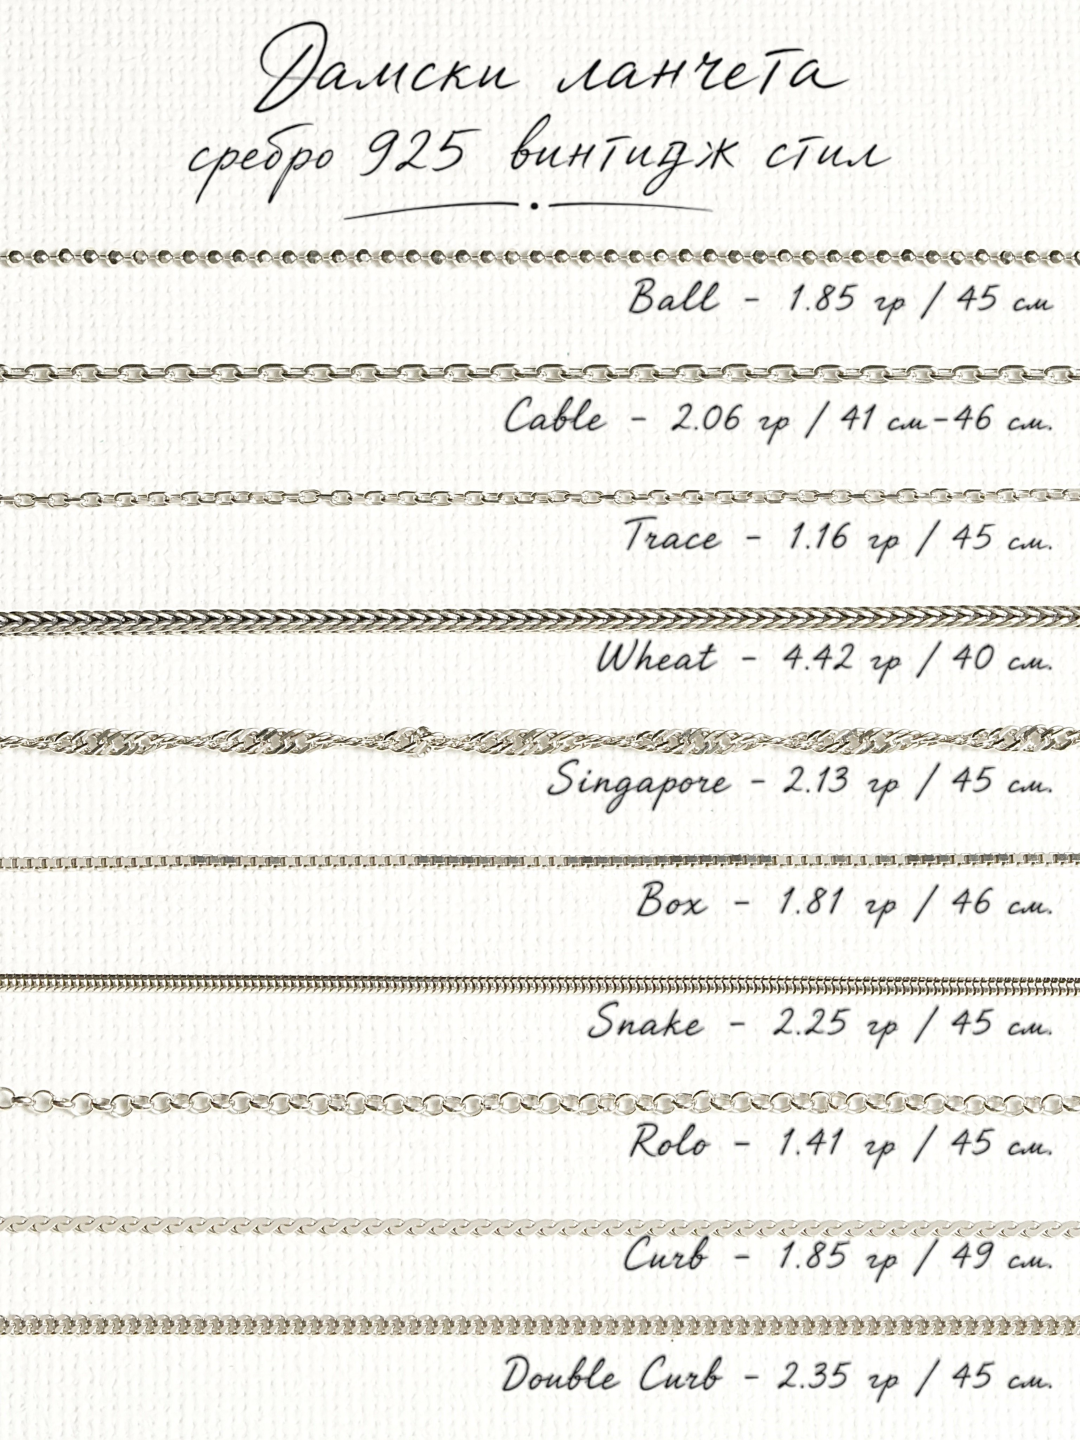 Дамски ланчета
сребро 925 винтидж стил
Ball - 1.85 гр / 45 см
Cable - 2.06 гр / 41 см-46 см.
Trace - 1.16 гр / 45 см.
Wheat - 4.42 гр / 40 см.
Singapore - 2.13 гр / 45 см.
Box - 1.81 гр / 46 см.
Snake - 2.25 гр / 45 см.
Rolo - 1.41 гр / 45 см.
Curb - 1.85 гр / 49 см.
Double Curb - 2.35 гр / 45 см.